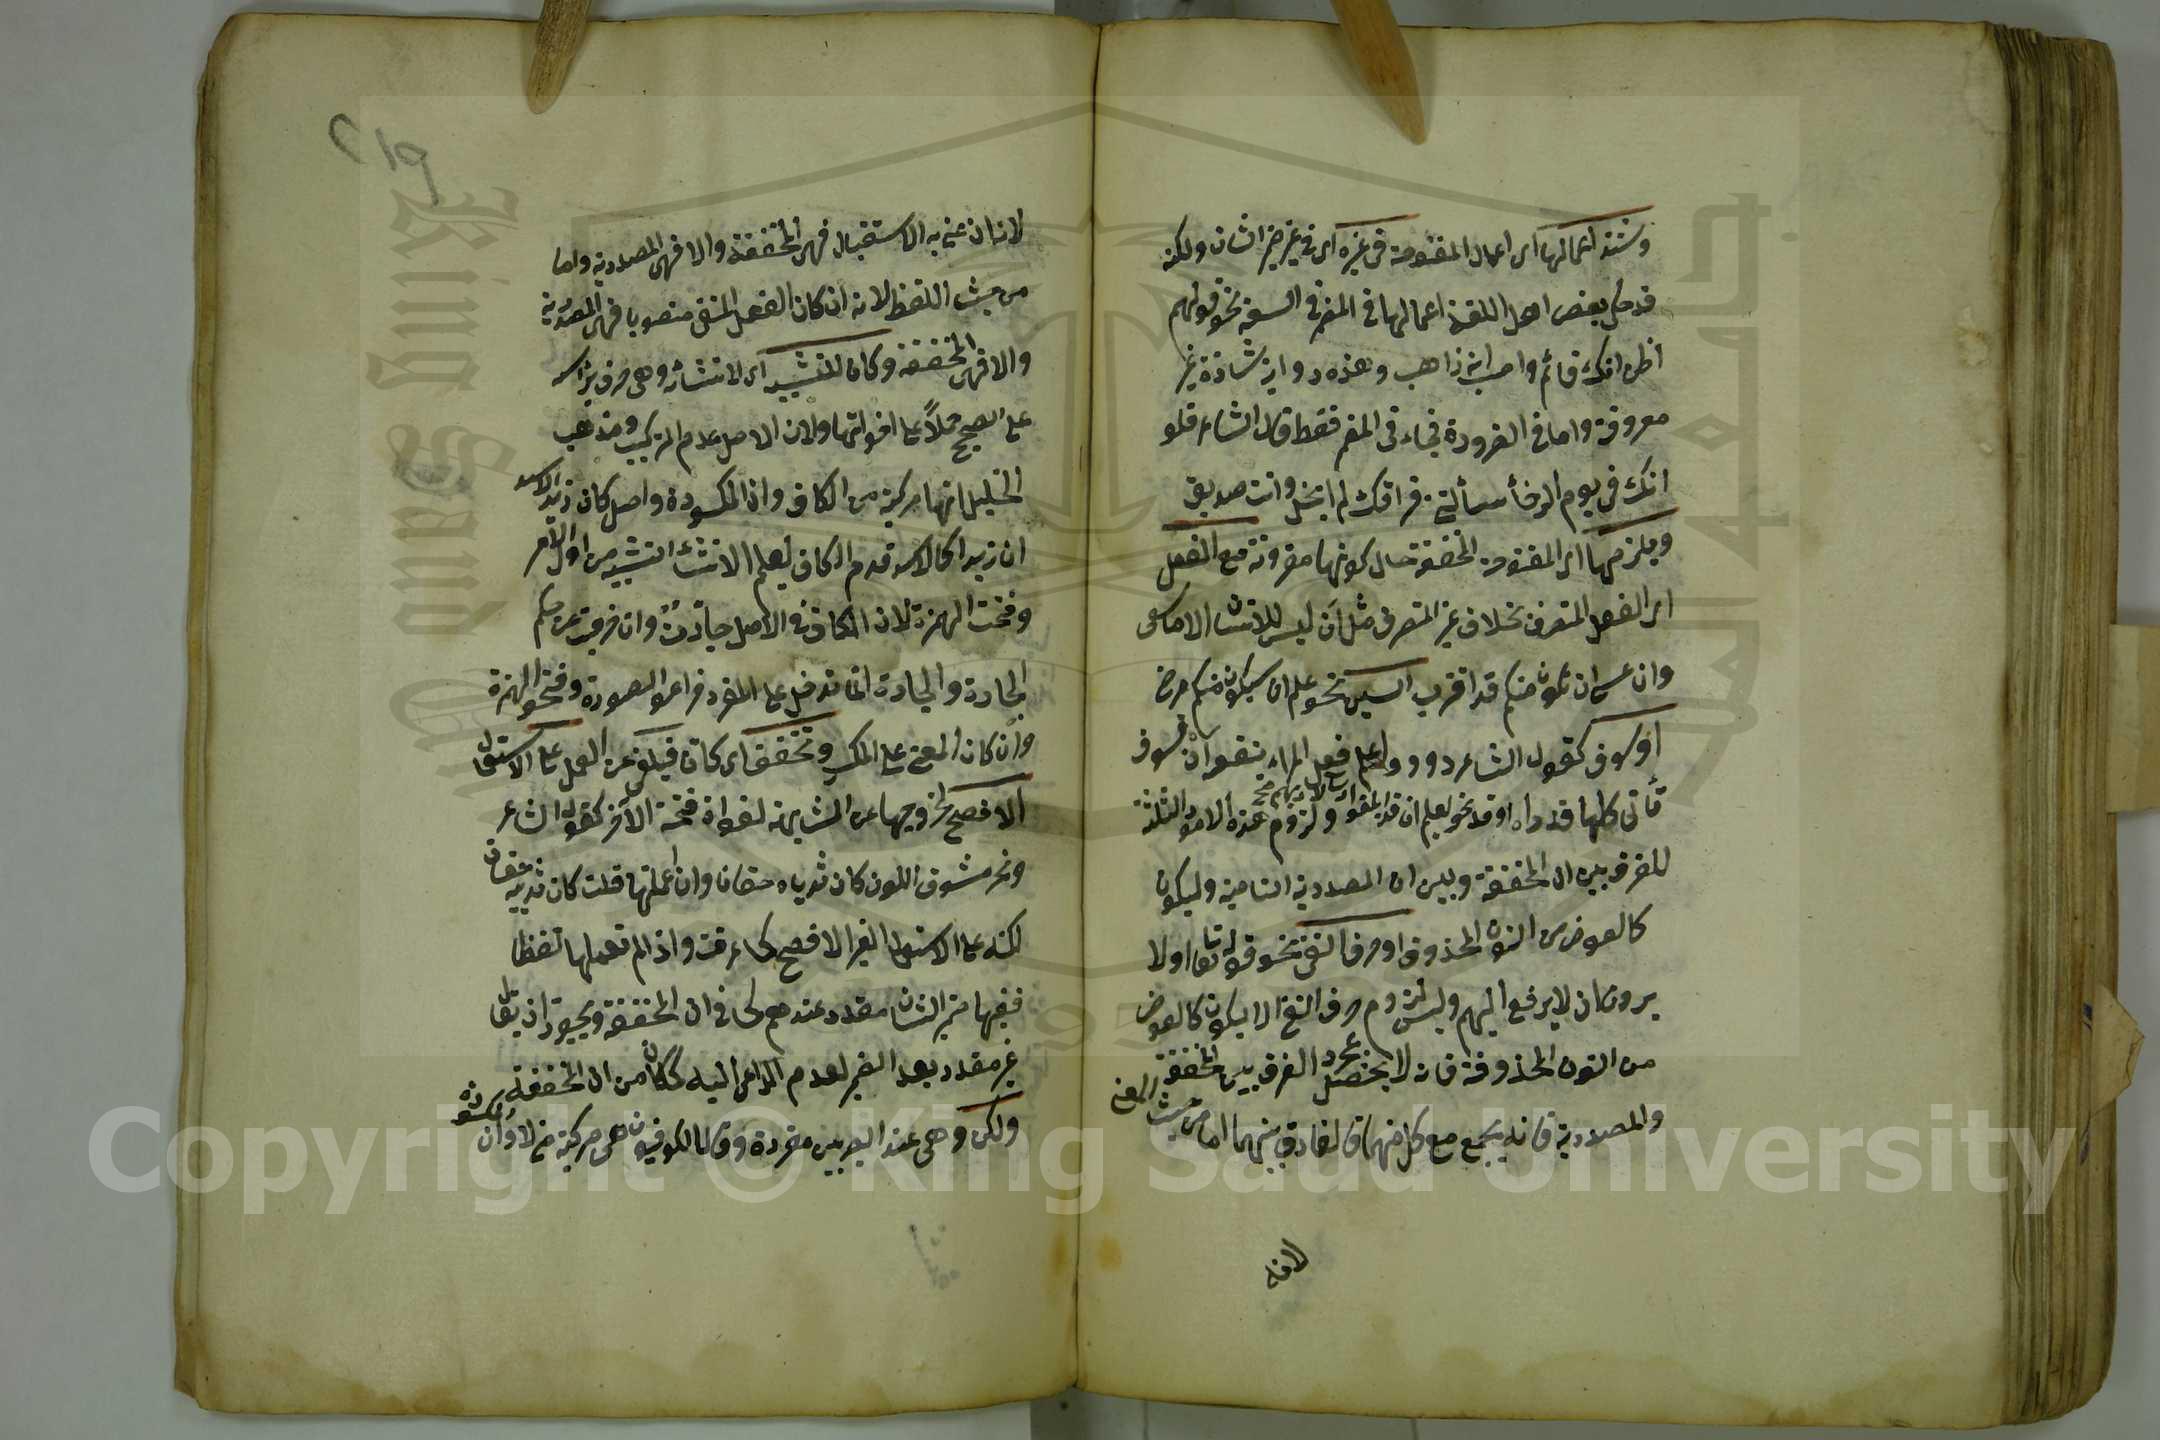 وشذ اعمالها اى اعمال المفتوحة فى غيره اى فى غير ضمير الشان ولكنه
قد حكى بعض اهل اللغة اعمالها فى المضمر فى السعة نحو قولهم
اظن انك قائم واحسب انه ذاهب وهذه رواية شاذة غير
معروفة واما فى الضرورة فجاء فى المضمر فقط قال الشاعر فلو
انك فى يوم الرخأ سألتنى فراقك لم ابخل وانت صديق
ويلزمها اى المفتوحة المخففة حال كونها مقرونة مع الفعل
اى الفعل المتصرف بخلاف غير المتصرف مثل ان ليس للانسان الا ما سعى
وان عسى ان يكون منكم قد اقرب السين نحو علم ان سيكون منكم مرضى
او سوف كقول الشاعر واعلم فعلم المراء ينفعه ان سوف
يأتى كلما قدرا او قد نحو ليعلم ان قد ابلغوا رسالات ربهم ولزوم هذه الامور الثلثة
للفرق بين ان المخففة وبين ان المصدرية الناصبة وليكون
كالعوض من النون المحذوف او حرف النفى نحو قوله تعا اولا
يرون ان لا يرجع اليهم وليس لزوم حرف النفى الا ليكون كالعوض
من النون المحذوفة فانه لا يحصل بمجرده الفرق بين المخففة
والمصدرية فانه يجمع مع كل منهما فالفارق بينهما اما من حيث المعنى
لانه
٢١٩
لانه ان عنى به الاستقبال فهى المخففة والا فهى المصدرية واما
من حيث اللفظ لانه ان كان الفعل المنفى منصوبا فهى المصدرية
والا فهى المخففة وكان للتشبيه اى لانشائه وهى حرف برأسه
على الصحيح حملاً على اخواتها ولان الاصل عدم التركيب ومذهب
الخليل انها مركبة من الكاف وان المكسورة واصل كان زيدا الاسد
ان زيدا كالاسد قدم الكاف ليعلم انشاء التشبيه من اول الامر
وفتحت الهمزة لان الكاف فى الاصل جارة وان خرجت عن حكم
الجارة والجارة انما تدخل على المفرد فراعوا الصورة وفتحوا الهمزة
وان كان المعنى على المكسورة وتخفف اى كان فيلغى عن العمل على الاستعمال
الافصح لخروجها عن المشابهة لفوات فتحة الآخر كقول الشاعر
ونحر مشرق اللون كان ثدياه حقان وان اعملتها قلت كان ثدييه حقان
لكنه على الاستعمال الغير الافصح كما عرفت واذا لم تعملها لفظا
ففيها ضمير الشان مقدر عندهم كما فى ان المخففة ويجوز ان يقال
غير مقدر بعد الضمير لعدم الداعى اليه كما كان من ان المخففة
ولكن وهى عند البصريين مفردة وقال الكوفيون هى مركبة من لا وان المكسورة
Copyright © King Saud University
King Saud University